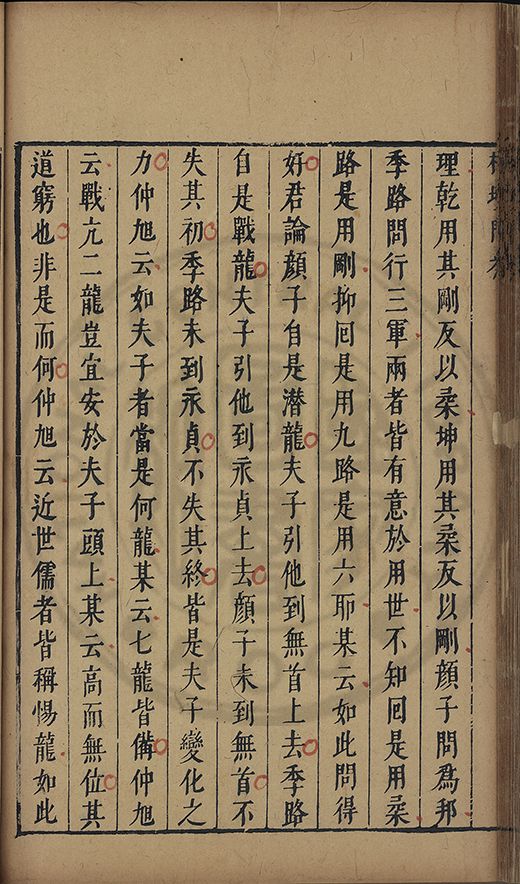 理乾用其剛反以柔坤用其柔反以剛顔子問爲邦
季路問行三軍兩者皆有意於用世不知囘是用柔
路是用剛抑囘是用九路是用六耶某云如此問得
好君論顔子自是潛龍夫子引他到無首上去季路
自是戰龍夫子引他到永貞上去顔子未到無首不
失其初季路未到永貞不失其終皆是夫子變化之
力仲旭云如夫子者當是何龍某云七龍皆備仲旭
云戰亢二龍豈宜安於夫子頭上某云高而無位其
道窮也非是而何仲旭云近世儒者皆稱惕龍如此